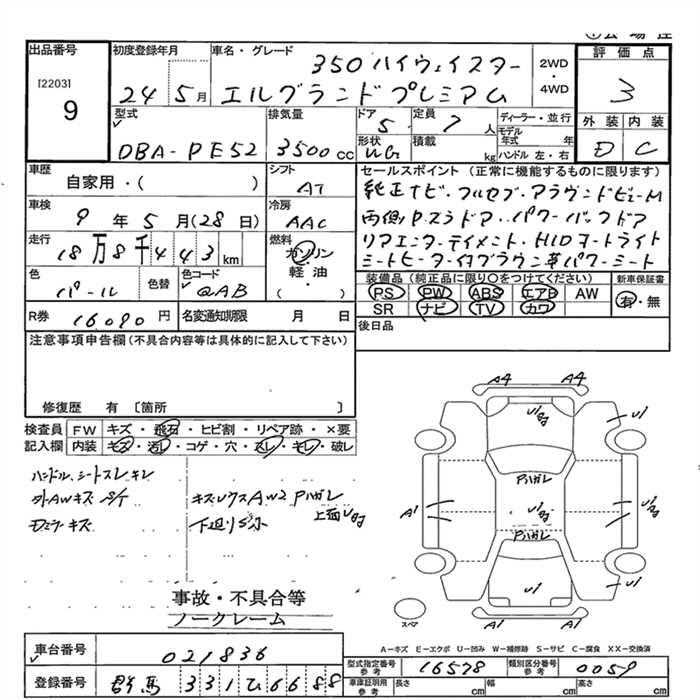 出品番号
[2203]
9
初度登録年月
24 5月
車名・グレード
350ハイウェイスター
エルグランドプレミアム
2WD
・
4WD
評価点
3
外装 内装
D C
型式
DBA-PE52
排気量
3500cc
ドア
5
定員
7人
形状
WG
積載
kg
ディーラー・並行
モデル年式 年
ハンドル 左・右
車歴
自家用・( )
シフト
AT
車検
9年5月(28日)
冷房
AAC
走行
18万8千443km
燃料
ガソリン
・
軽油
・
( )
色
パール
色替
色コード
QAB
R券 16090円
名変通知期限 月 日
セールスポイント(正常に機能するものに限ります)
純正ナビ・フルセグ・アラウンドビューM
両側P.スラドア・パワーバックドア
リアエンターテイメント・HIDオートライト
シートヒーター・付ブラウン革パワーシート
装備品(純正品に限り○をつけてください)
PS PW ABS エアB AW
SR ナビ TV カワ
新車保証書
有・無
後日品
注意事項申告欄(不具合内容等は具体的に記入して下さい)
修復歴 有 〔箇所 〕
検査員記入欄
FW キズ・飛石・ヒビ割・リペア跡・×要
内装 キズ・汚レ・コゲ・穴・スレ・キレ・破レ
ハンドル、シートスレ キレ
外AWキズ
キズ・Uクス AW2 Pハガレ
ドアミラーキズ
下廻りサビ
事故・不具合等
ノークレーム
A4 A4
U1
U1
Pハガレ
A1
Pハガレ
U1
U1
A1 A1
スペア
A-キズ E-エクボ U-凹み W-補修跡 S-サビ C-腐食 XX-交換済
車台番号
021836
登録番号
群馬 331ひ6688
型式指定番号
参考
16578
類別区分番号
参考
0059
車庫証明用
参考
長さ cm 幅 cm 高さ cm